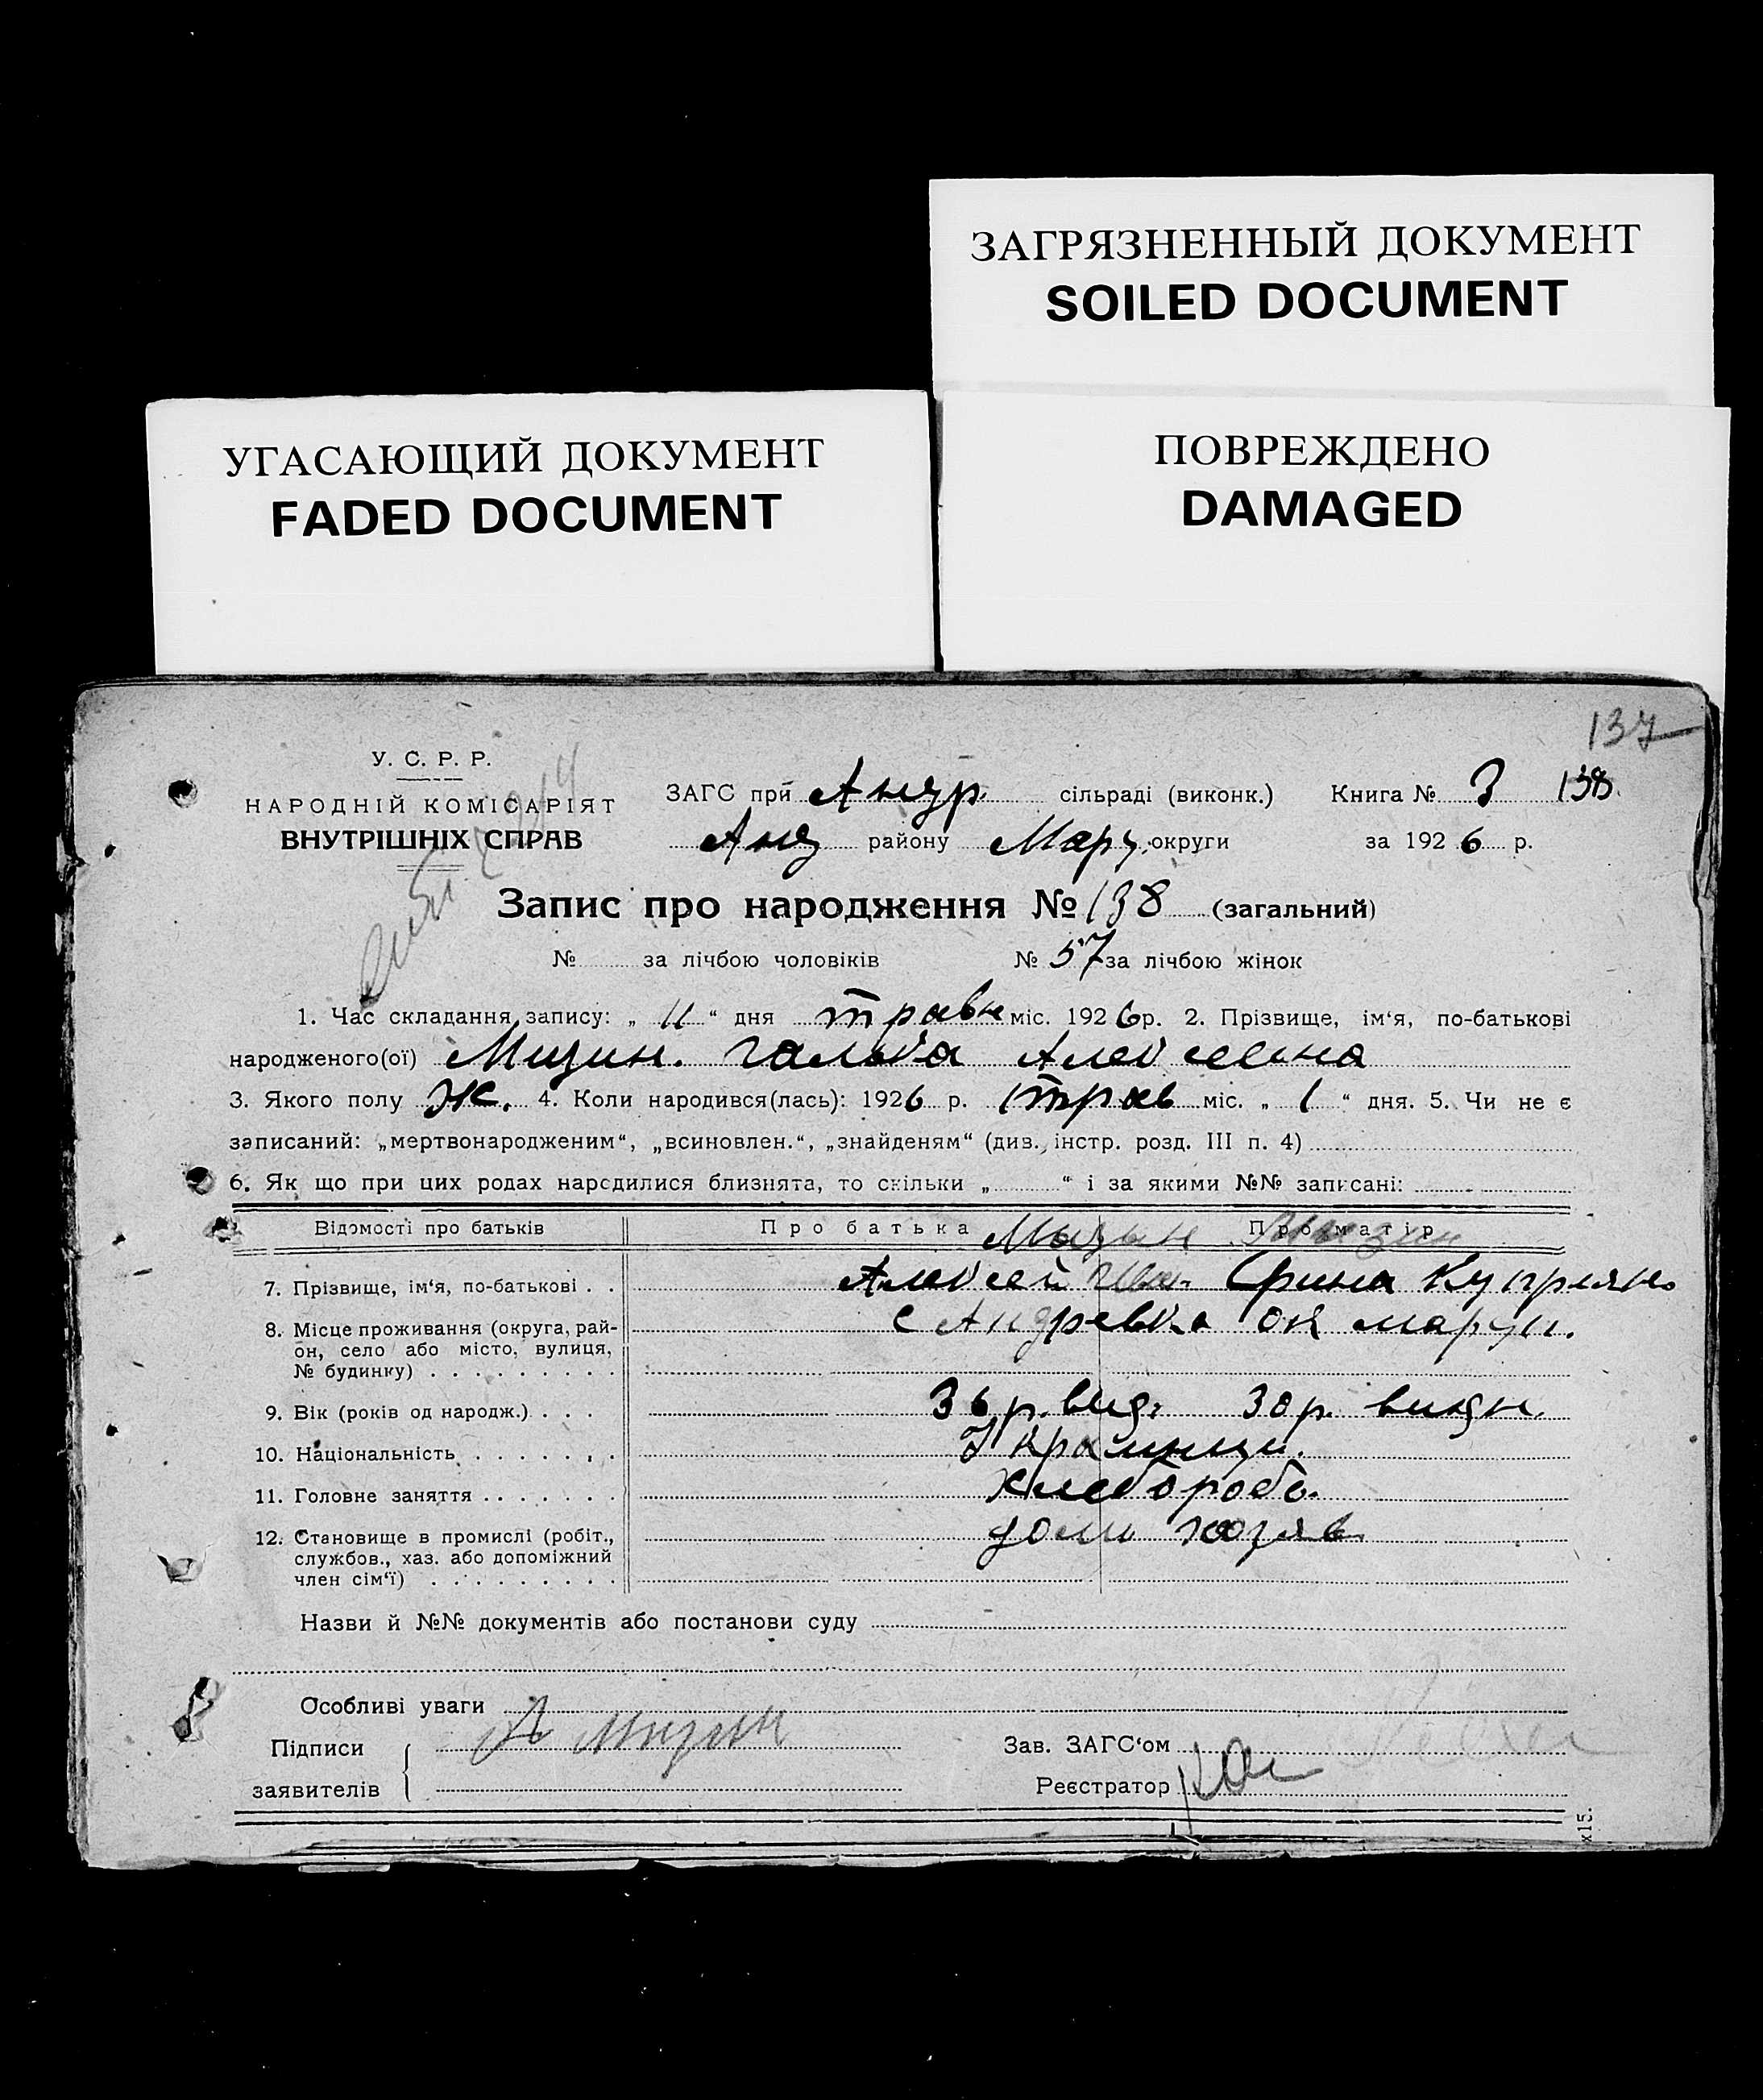 ЗАГРЯЗНЕННЫЙ ДОКУМЕНТ
SOILED DOCUMENT
УГАСАЮЩИЙ ДОКУМЕНТ
FADED DOCUMENT
ПОВРЕЖДЕНО
DAMAGED
137
У. С. Р. Р.
НАРОДНІЙ КОМІСАРІЯТ
ВНУТРІШНІХ СПРАВ
ЗАГС при Андр. сільраді (виконк.) Книга № 3 138
Анд району Маріу. округи за 1926 р.
Запис про народження № 138 (загальний)
№ за лічбою чоловіків № 57 за лічбою жінок
1. Час складання запису: „ 11 “ дня травн міс. 1926 р. 2. Прізвище, ім‘я, по-батькові
народженого(ої) Мизин. Галька
3. Якого полу Ж. 4. Коли народився(лась): 1926 р. трав міс. „ 1 “ дня. 5. Чи не є
записаний: „мертвонародженим“, „всиновлен.“, „знайденям“ (див. інстр. розд. III п. 4)
6. Як що при цих родах народилися близнята, то скільки „ “ і за якими №№ записані:
Відомості про батьків Про батька Мизин Про матір Мизин
7. Прізвище, ім‘я, по-батькові . . Алексей Ива. Єрина Куприян.
8. Місце проживання (округа, рай- с Андревка ок марун.
он, село або місто, вулиця,
№ будинку)
9. Вік (років од народж.) . . . 36 р. 30 р.
10. Національність Українци.
11. Головне заняття Хлебороб.
12. Становище в промислі (робіт., дом хозяв
службов., хаз. або допоміжний
член сім‘ї)
Назви й №№ документів або постанови суду
Особливі уваги
Підписи А Мизин Зав. ЗАГС‘ом
заявителів Реєстратор
х15.